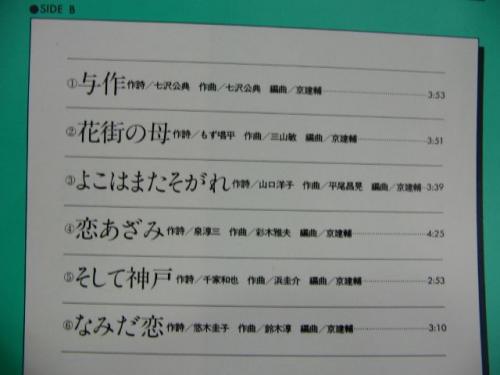 ●SIDE B
①与作作詩/七沢公典 作曲/七沢公典 編曲/京建輔 3:53
②花街の母作詩/もず唱平 作曲/三山敏 編曲/京建輔 3:51
③よこはまたそがれ作詩/山口洋子 作曲/平尾昌晃 編曲/京建輔 3:39
④恋あざみ作詩/泉淳三 作曲/彩木雅夫 編曲/京建輔 4:25
⑤そして神戸作詩/千家和也 作曲/浜圭介 編曲/京建輔 2:53
⑥なみだ恋作詩/悠木圭子 作曲/鈴木淳 編曲/京建輔 3:10